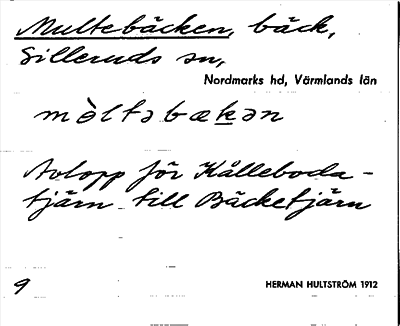 Multebäcken, bäck,
Silleruds sn,
Nordmarks hd, Värmlands län
mòltabækan
Avlopp för Kålleboda-
tjärn till Bäcketjärn
9 HERMAN HULTSTRÖM 1912